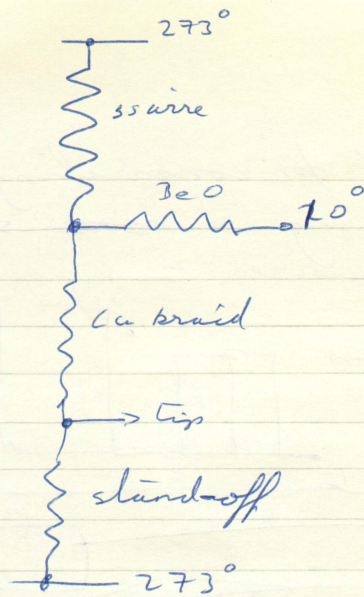 273°
ss wire
BeO
10°
Cu braid
tip
stand-off
273°